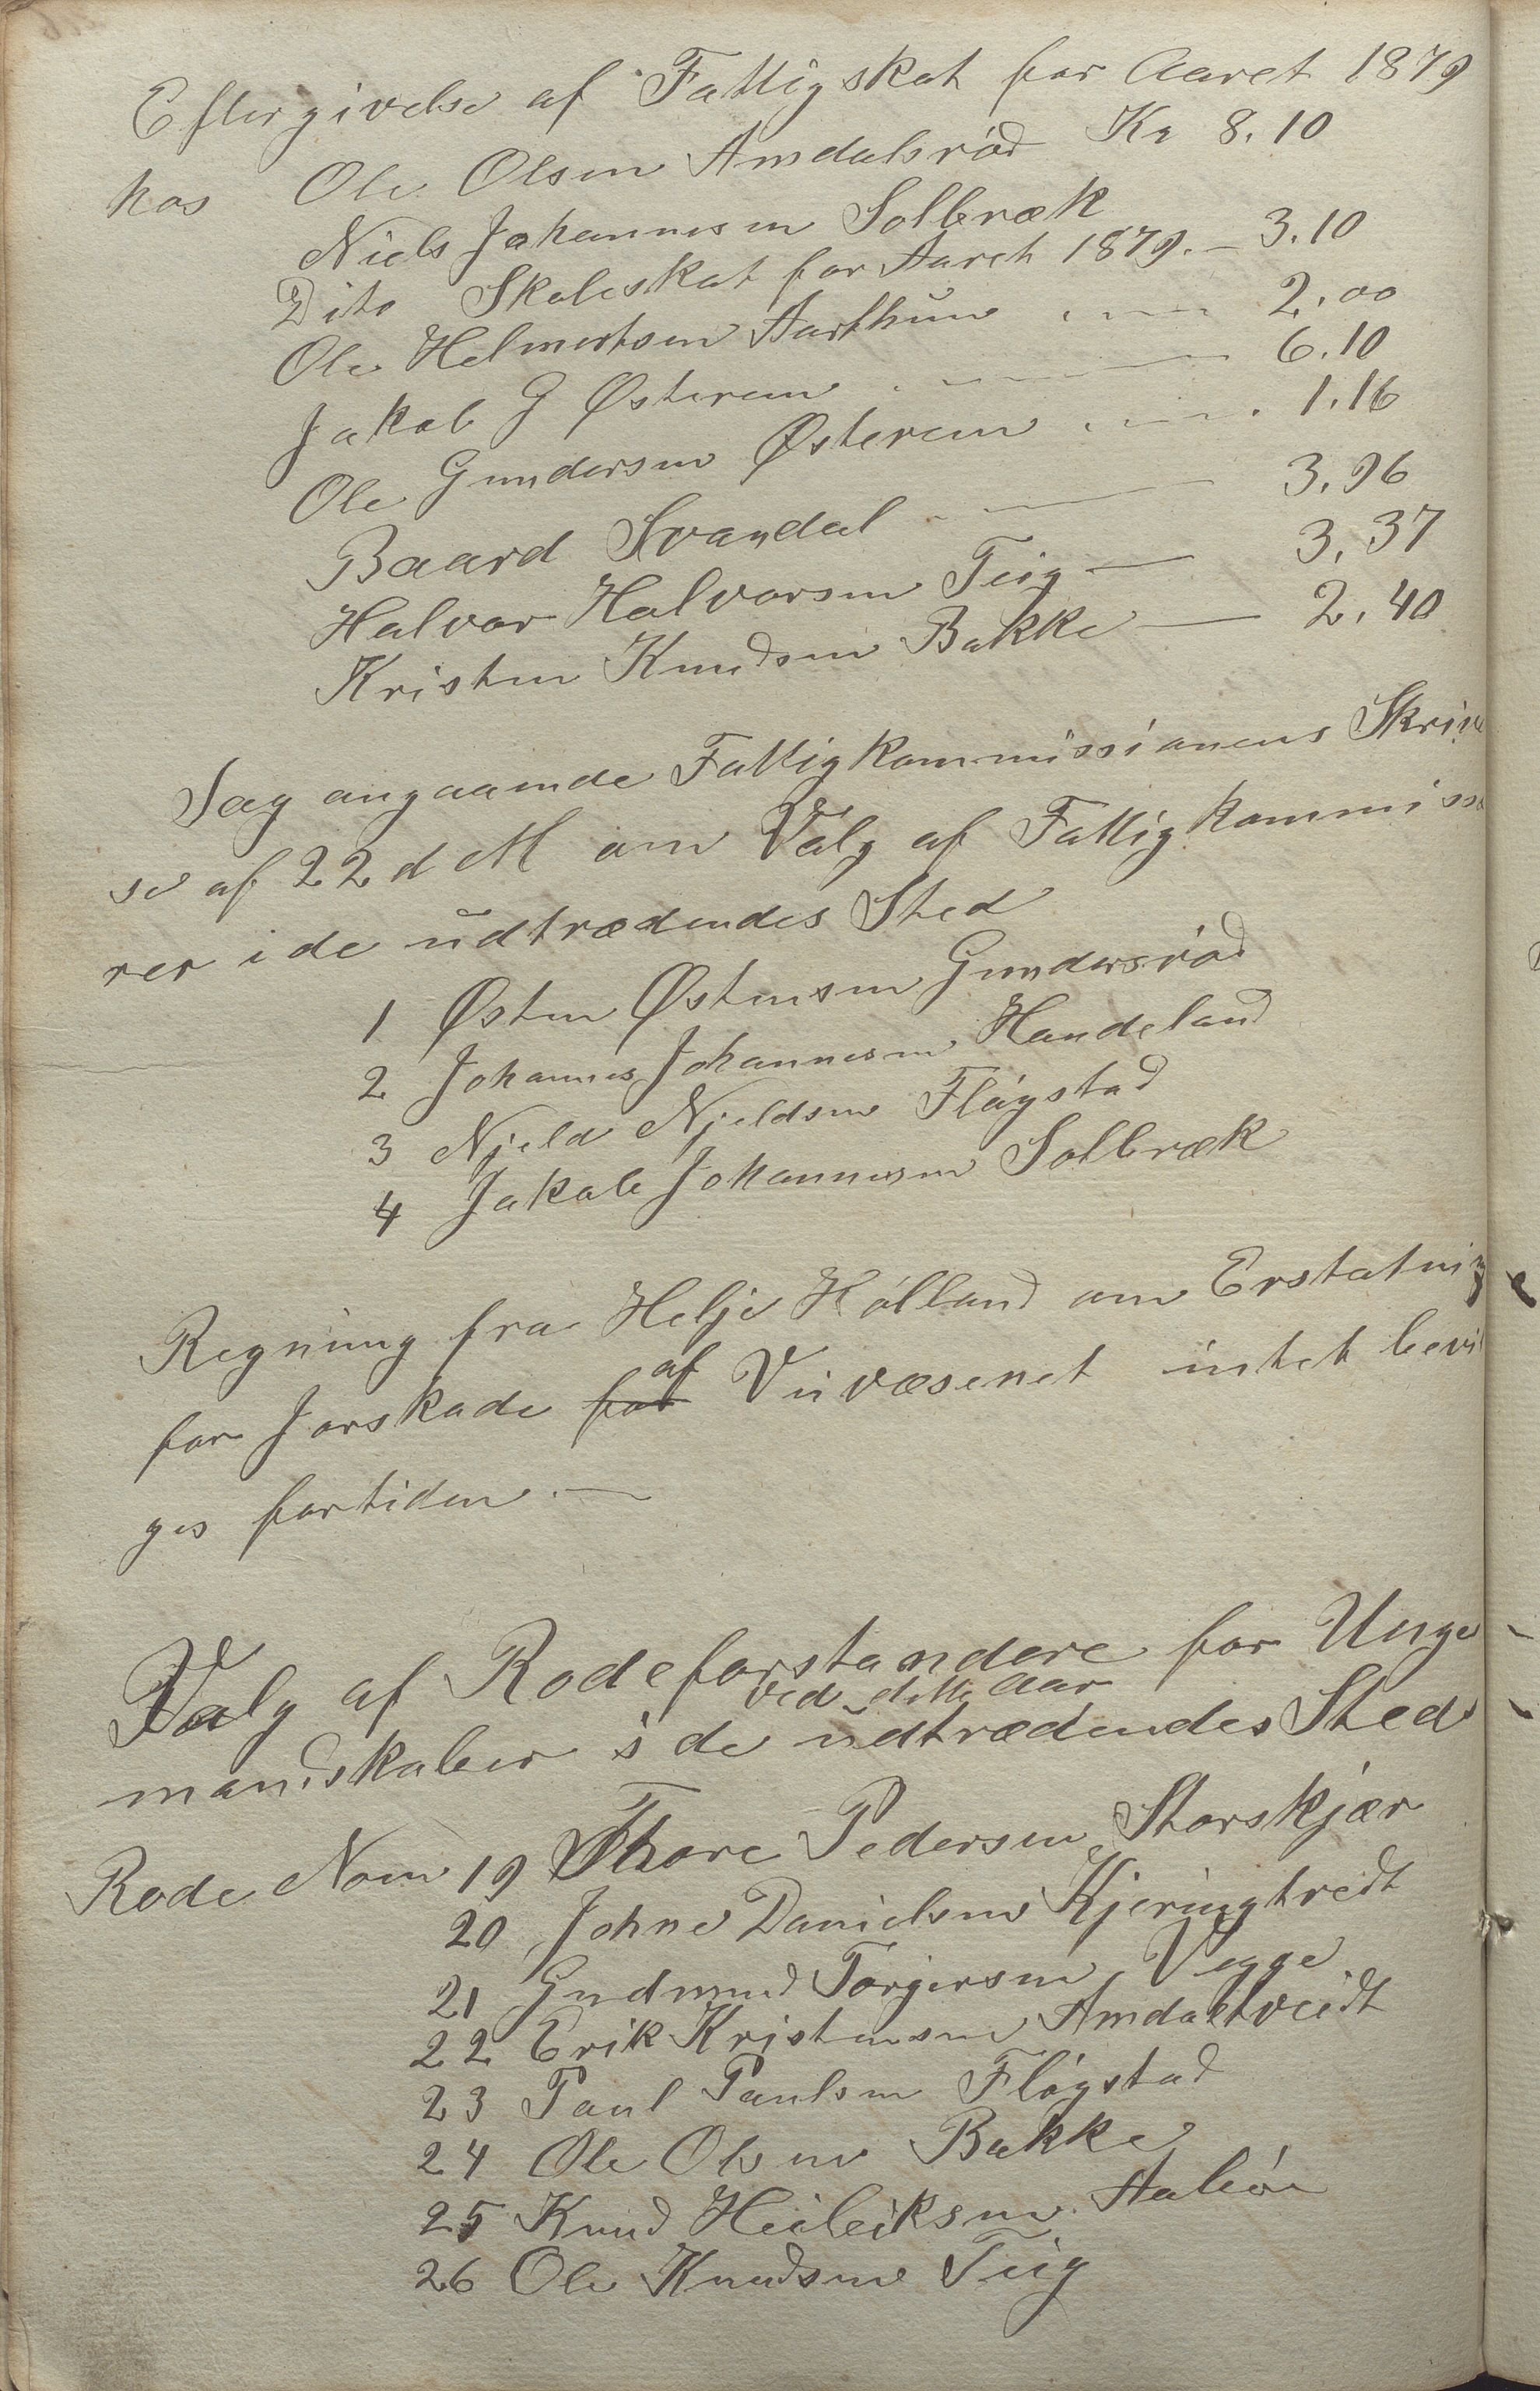 Eftergivelse af Fattigskat for Aaret 1879
hos Ole Olsen Amdalsrød Kr 8.10
Niels Johannesen Solbræk
Dito Skoleskat for Aaret 1879. — 3.10
Ole Helmertsen Aarthun 2.00
Jakob G Østerem 6.10
Ole Gundersen Østerem 1.16
Baard Svandal 3.96
Halvor Halvorsen Teig — 3.37
Kristen Knudsen Bakke — 2.40
Sag angaaende Fattigkommissionens Skrive
se af 22 d M om Valg af Fattigkommissæ
rer i de udtrædendes Sted
1 Østen Østensen Gundersrød
2 Johannes Johannesen Handeland
3 Njeld Njeldsen Fløgstad
4 Jakob Johannesen Solbræk
Regning fra Helje Hølland om Erstatning
for Jorskade for af Veivæsenet intet bevil
ges fortiden. —
Valg af Rodeforstandere for Unge
ved dette Aar
mandskaber i de udtrædendes Sted
Rode Nom 19 Thore Pedersen Storskjær
20 Johne Danielsen Kjeringtveidt
21 Gudmund Torgersen Vegge
22 Erik Kristensen Amdaltveidt
23 Paul Paulsen Fløgstad
24 Ole Olsen Bakke
25 Knud Heileiksen
26 Ole Knudsen Teig